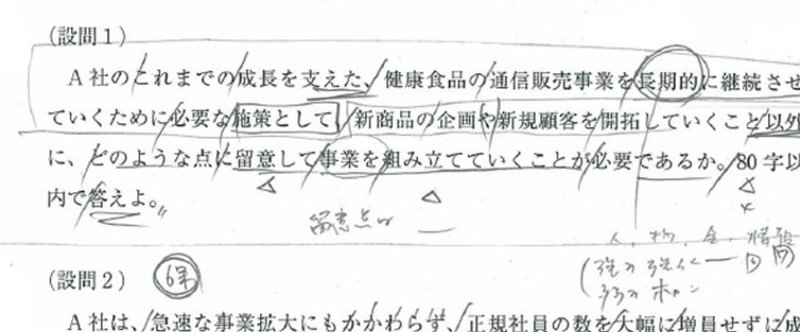 (設問1)
A社のこれまでの成長を支えた、健康食品の通信販売事業を長期的に継続させ
ていくために必要な施策として、新商品の企画や新規顧客を開拓していくこと以外
に、どのような点に留意して事業を組み立てていくことが必要であるか。80字以
内で答えよ。
留意点は
人、物、金、情報
(設問2)
A社は、急速な事業拡大にもかかわらず、正規社員の数を大幅に増員せずに成